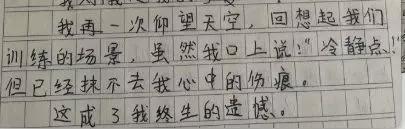 我再一次仰望天空，回想起我们
训练的场景，虽然我口上说：“冷静点！”
但已经抹不去我心中的伤痕。
这成了我终生的遗憾。